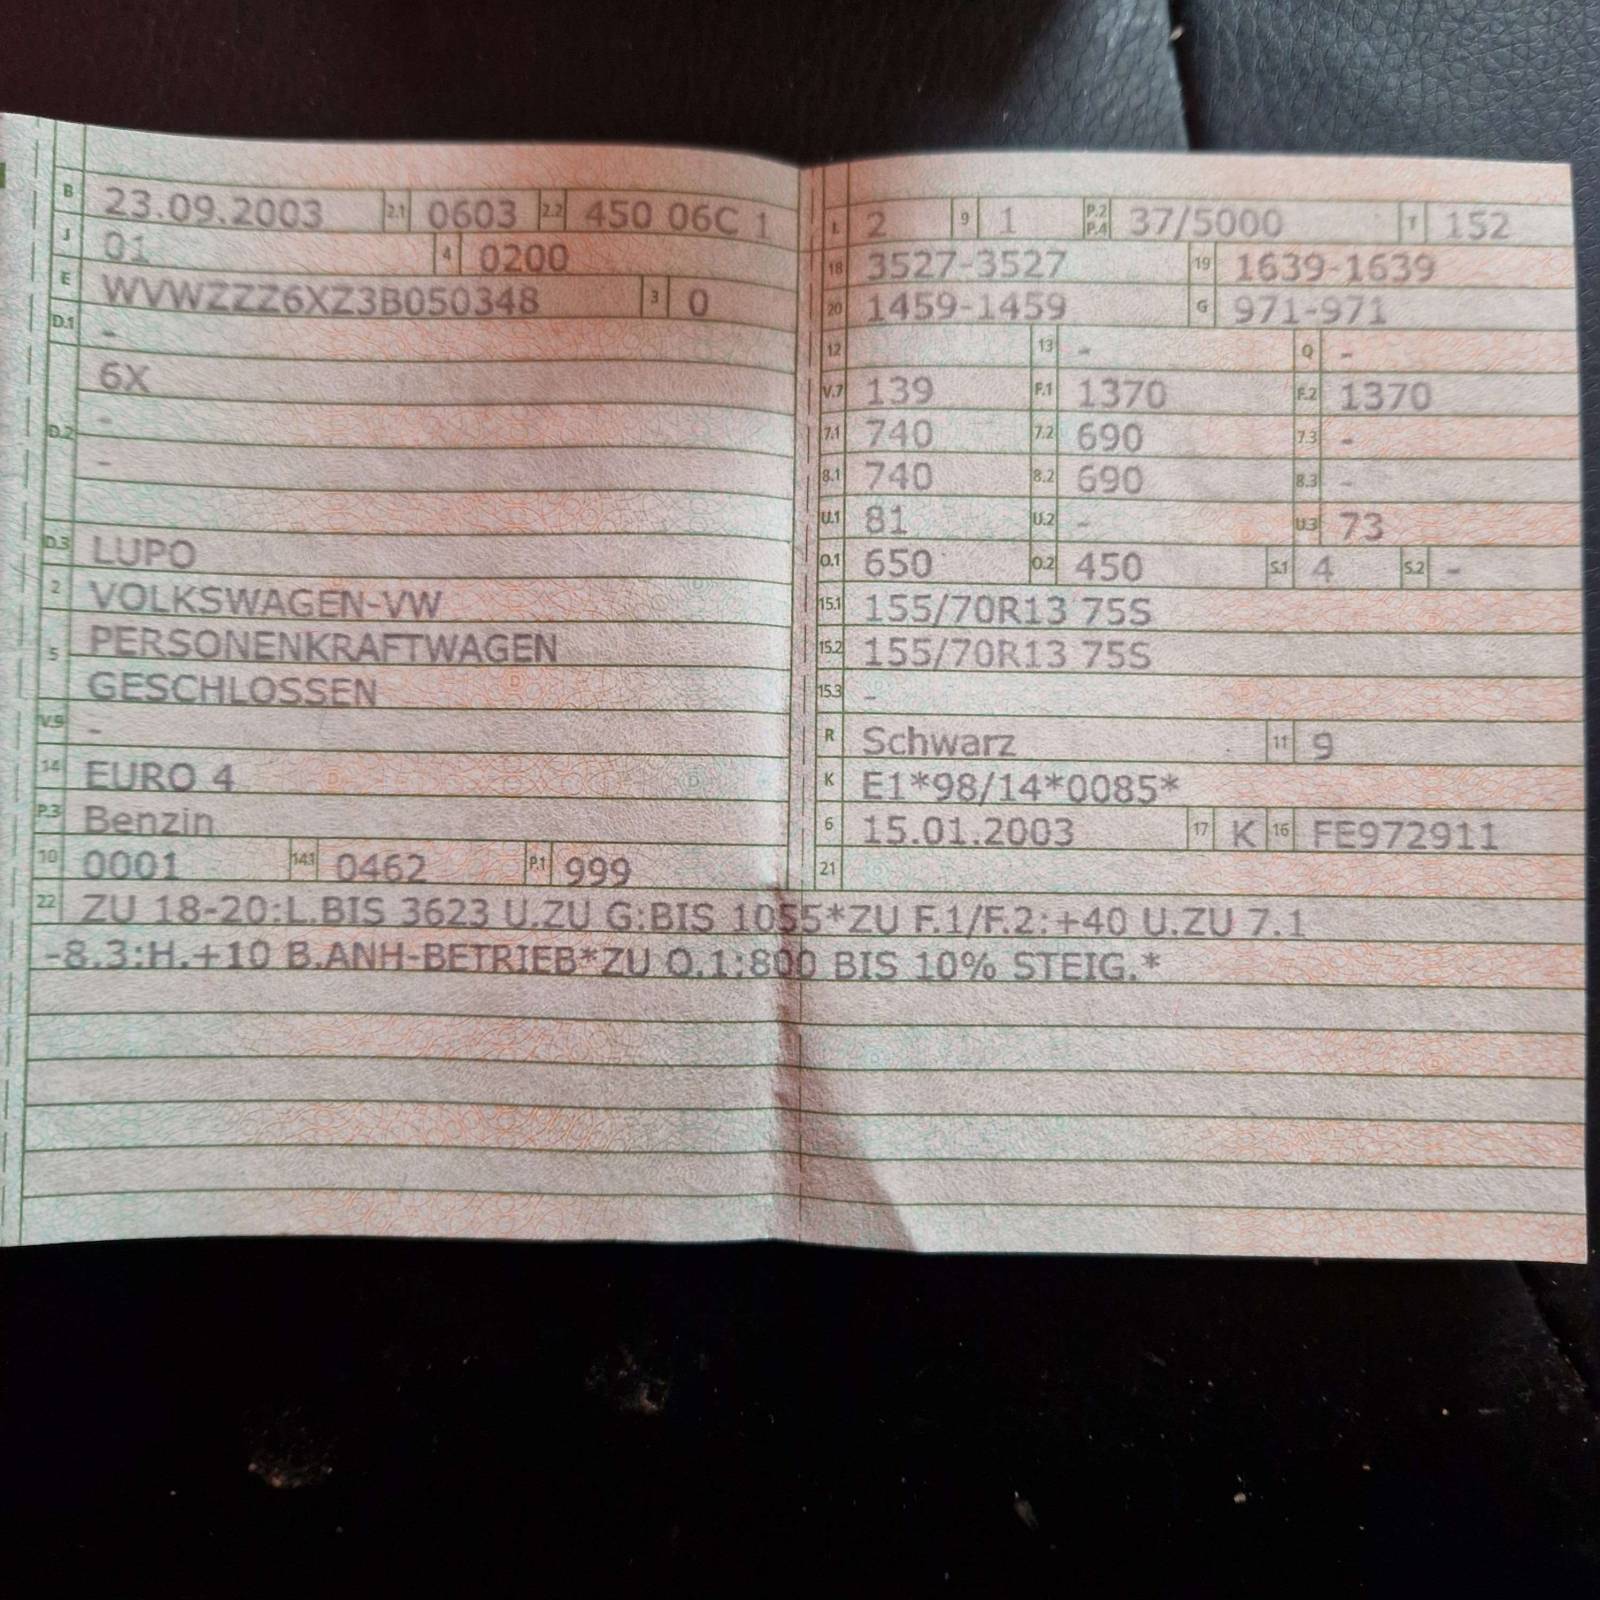 B 23.09.2003 2.1 0603 2.2 450 06C 1
J 01 4 0200
E WVWZZZ6XZ3B050348 3 0
D.1 -
6X
D.2 -
-
D.3 LUPO
2 VOLKSWAGEN-VW
5 PERSONENKRAFTWAGEN
GESCHLOSSEN
V.9 -
14 EURO 4
P.3 Benzin
10 0001 14.1 0462 P.1 999
L 2 9 1 P.2 P.4 37/5000 T 152
18 3527-3527 19 1639-1639
20 1459-1459 G 971-971
12 13 - Q -
V.7 139 F.1 1370 F.2 1370
7.1 740 7.2 690 7.3 -
8.1 740 8.2 690 8.3 -
U.1 81 U.2 - U.3 73
O.1 650 O.2 450 S.1 4 S.2 -
15.1 155/70R13 75S
15.2 155/70R13 75S
15.3 -
R Schwarz 11 9
K E1*98/14*0085*
6 15.01.2003 17 K 16 FE972911
21
22 ZU 18-20:L.BIS 3623 U.ZU G:BIS 1055*ZU F.1/F.2:+40 U.ZU 7.1
-8.3:H.+10 B.ANH-BETRIEB*ZU O.1:800 BIS 10% STEIG.*